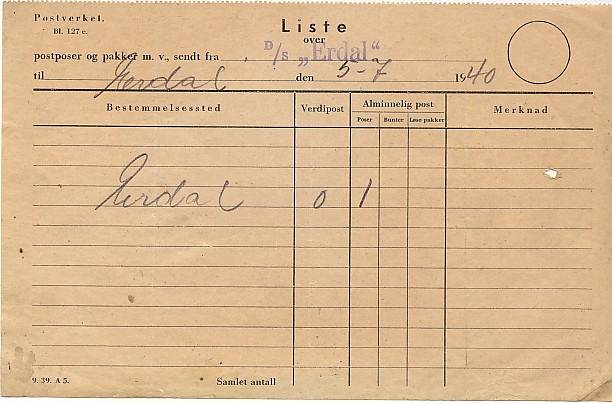 Postverket.
Bl. 127 c.
Liste
over
postposer og pakker m. v., sendt fra D/s „Erdal“
til Lerdal den 5-7 1940
Bestemmelsessted Verdipost Alminnelig post Merknad
Poser Bunter Løse pakker
Lerdal 0 1
9. 39. A 5. Samlet antall